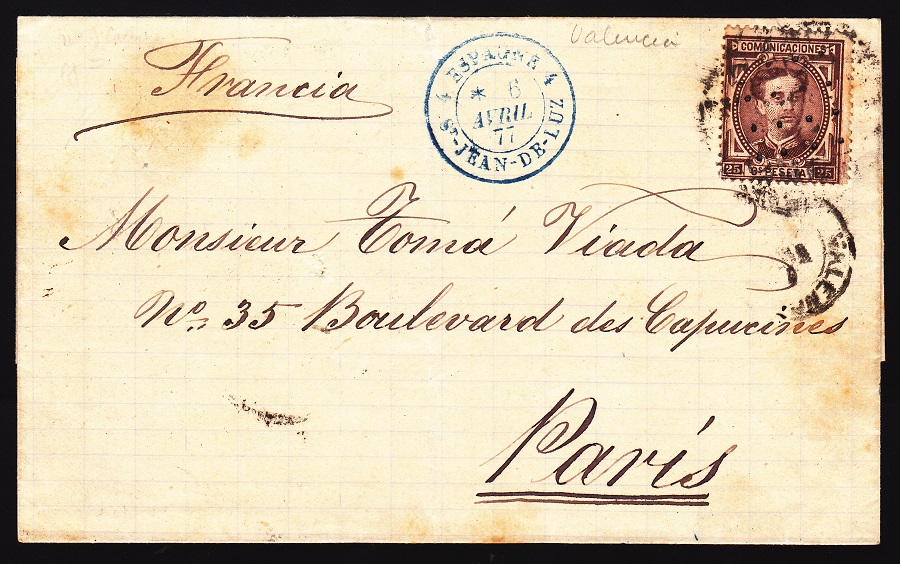 Valencia
Francia
4 ESPAGNE 4
* 6
AVRIL
77
ST-JEAN-DE-LUZ
COMUNICACIONES
25 Cs PESETA 25
VALEN
Monsieur Tomá Viada
No. 35 Boulevard des Capucines
París